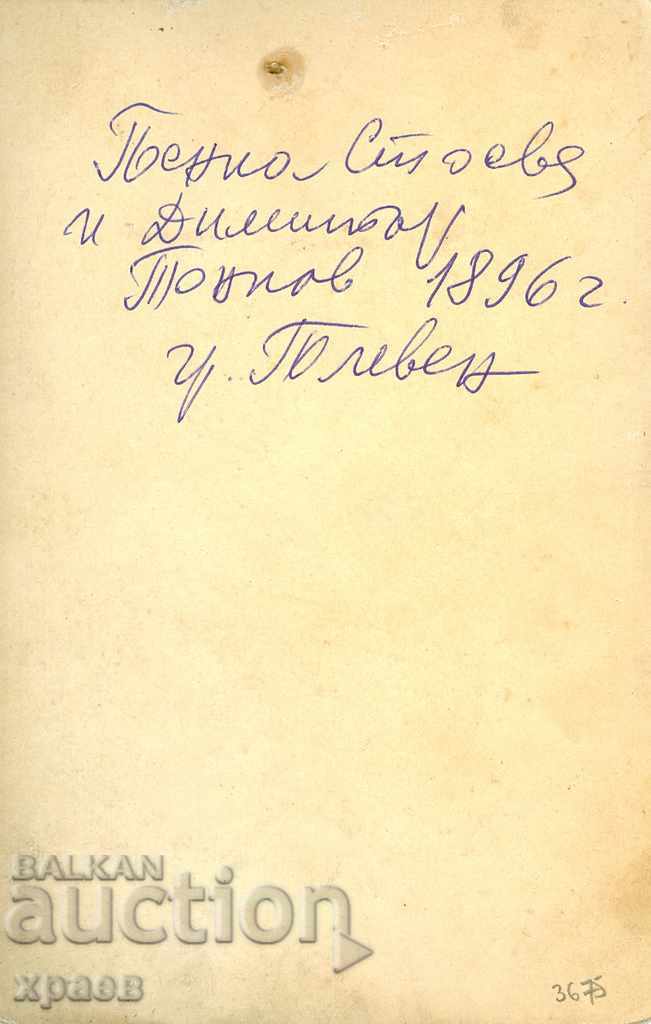 Пенка Стоева
и Димитър
Тонков 1896 г.
гр. Плевен
BALKAN
auction
храев
3675